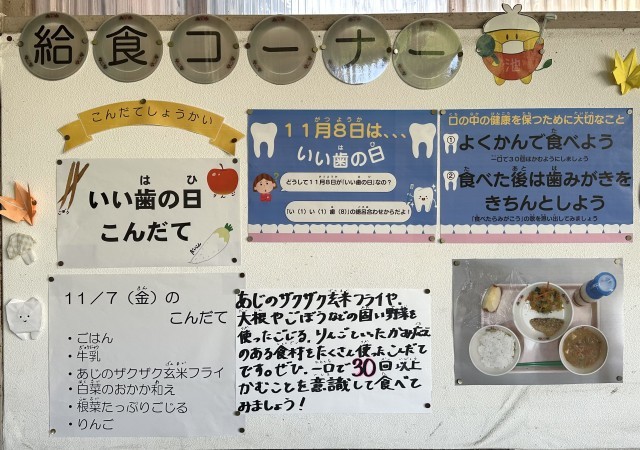 給食コーナー
こんだてしょうかい
いい歯の日
こんだて
11月8日は、、、
いい歯の日
どうして11月8日が「いい歯の日」なの?
「い(1)い(1)歯(8)」の語呂合わせからだよ!
口の中の健康を保つために大切なこと
①よくかんで食べよう
一口で30回はかむようにしましょう
②食べた後は歯みがきを
きちんとしよう
「食べたらみがこう」の歌を思い出してみましょう
11/7(金)の
こんだて
・ごはん
・牛乳
・あじのザクザク玄米フライ
・白菜のおかか和え
・根菜たっぷりごじる
・りんご
あじのザクザク玄米フライや、
大根やごぼうなどの固い野菜を
使ったごじる、りんごといったかみごたえ
のある食材をたくさん使ったこんだて
です。ぜひ、一口で30回以上
かむことを意識して食べて
みましょう!